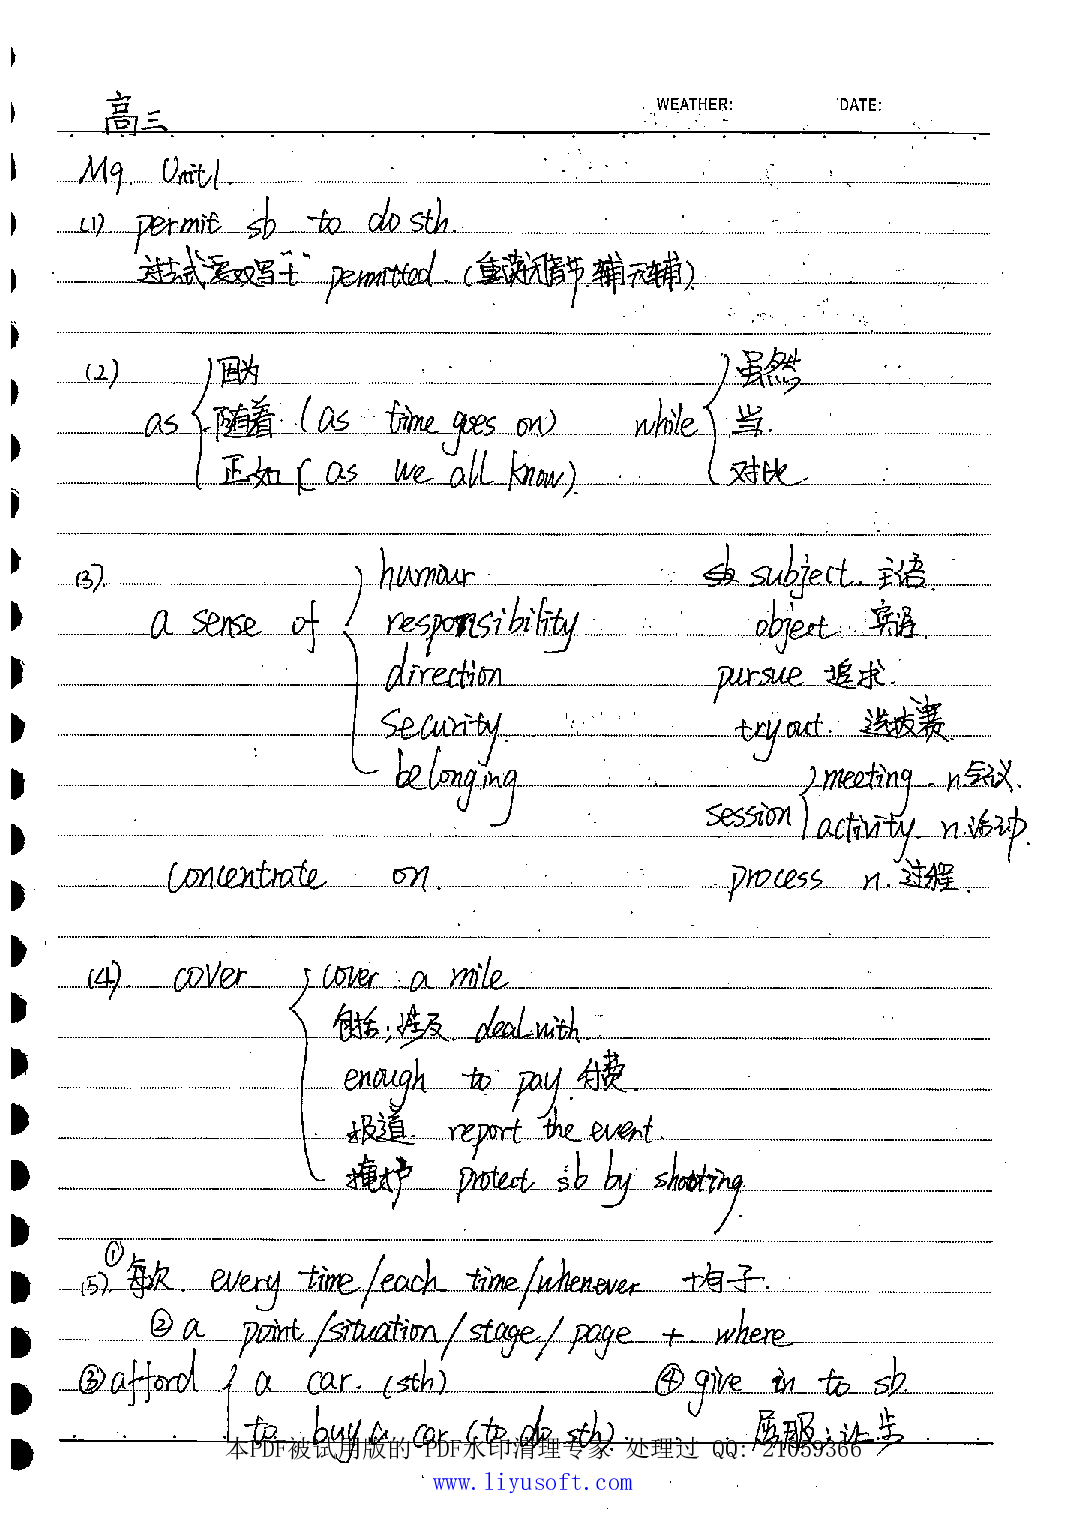 高三
WEATHER: DATE:
M9. Unit1.
(1) permit sb to do sth.
过去式要双写"t" permitted. (重读闭音节, 辅元辅)
(2) as { 因为
随着. (as time goes on)
正如 ( as we all know).
while { 虽然
当.
对比.
(3). a sense of { humour
responsibility
direction
security.
belonging
subject. 主语.
object 宾语.
pursue 追求.
tryout. 选拔赛.
session { meeting n会议.
activity. n.活动.
concentrate on. process n. 过程.
(4). cover { cover a mile
包括; 涉及 deal with.
enough to pay 付费.
报道. report the event.
掩护 protect sb by shooting.
(5). ① 每次. every time/each time/whenever +句子.
② a point/situation/stage/page + where
③ afford { a car. (sth)
to buy a car (to do sth)
④ give in to sb.
屈服; 让步
本PDF被试用版的 PDF水印清理专家 处理过 QQ: 21059366
www.liyusoft.com